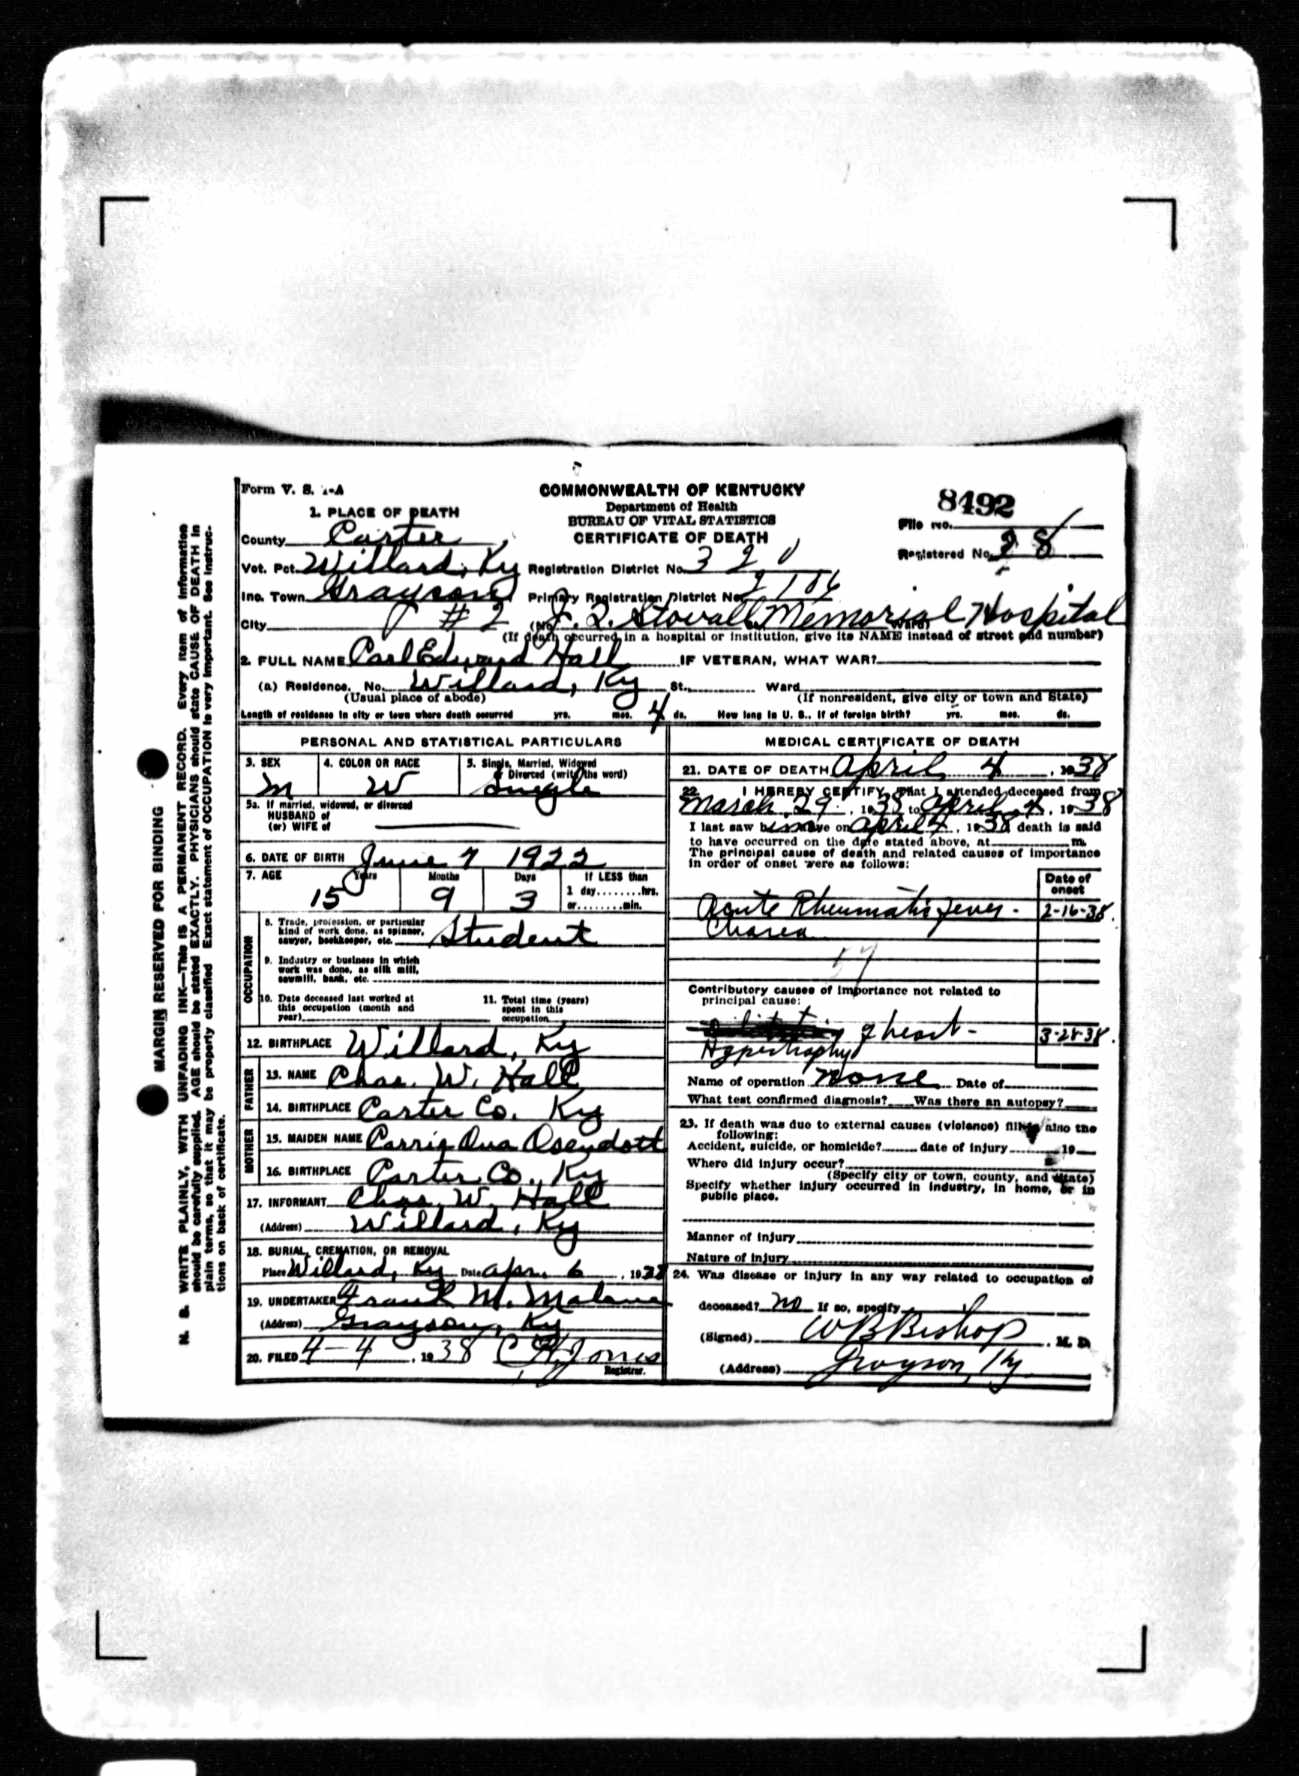 Form V. S. 1-A
COMMONWEALTH OF KENTUCKY
Department of Health
BUREAU OF VITAL STATISTICS
CERTIFICATE OF DEATH
8492
File No.
Registered No. 28
1. PLACE OF DEATH
County Carter
Vot. Pct. Willard, Ky Registration District No. 320
Inc. Town Grayson Primary Registration District No. 2106
City #2 (No. J. Q. Stovall Memorial Hospital Ward
(If death occurred in a hospital or institution, give its NAME instead of street and number)
2. FULL NAME Carl Edward Hall IF VETERAN, WHAT WAR?
(a) Residence. No. Willard, Ky St., Ward
(Usual place of abode) (If nonresident, give city or town and State)
Length of residence in city or town where death occurred yrs. mos. 4 ds. How long in U. S., if of foreign birth? yrs. mos. ds.
PERSONAL AND STATISTICAL PARTICULARS
3. SEX M
4. COLOR OR RACE W
5. Single, Married, Widowed or Divorced (write the word) Single
5a. If married, widowed, or divorced
HUSBAND of
(or) WIFE of
6. DATE OF BIRTH June 7 1922
7. AGE Years Months Days If LESS than
15 9 3 1 day, hrs.
or min.
OCCUPATION
8. Trade, profession, or particular
kind of work done, as spinner,
sawyer, bookkeeper, etc. Student
9. Industry or business in which
work was done, as silk mill,
sawmill, bank, etc.
10. Date deceased last worked at
this occupation (month and
year)
11. Total time (years)
spent in this
occupation
12. BIRTHPLACE Willard, Ky
FATHER
13. NAME Chas. W. Hall
14. BIRTHPLACE Carter Co. Ky
MOTHER
15. MAIDEN NAME Carrie
16. BIRTHPLACE Carter Co., Ky
17. INFORMANT Chas. W. Hall
(Address) Willard, Ky
18. BURIAL, CREMATION, OR REMOVAL
Place Willard, Ky Date Apr. 6, 1938
19. UNDERTAKER Frank M. Malone
(Address) Grayson, Ky
20. FILED 4-4, 1938 Jones
Registrar.
MEDICAL CERTIFICATE OF DEATH
21. DATE OF DEATH April 4, 1938
22. I HEREBY CERTIFY, That I attended deceased from
March 29, 1938 to April 4, 1938
I last saw him alive on April 4, 1938 death is said
to have occurred on the date stated above, at m.
The principal cause of death and related causes of importance
in order of onset were as follows:
Date of
onset
Acute Rheumatic Fever - 2-16-38.
Chorea
Contributory causes of importance not related to
principal cause:
of heart - 3-28-38.
Hypertrophy
Name of operation None Date of
What test confirmed diagnosis? Was there an autopsy?
23. If death was due to external causes (violence) fill in also the
following:
Accident, suicide, or homicide? date of injury 19
Where did injury occur?
(Specify city or town, county, and State)
Specify whether injury occurred in industry, in home, or in
public place.
Manner of injury
Nature of injury
24. Was disease or injury in any way related to occupation of
deceased? No If so, specify
(Signed) W B Bishop, M. D.
(Address) Grayson, Ky
MARGIN RESERVED FOR BINDING
N. B. WRITE PLAINLY, WITH UNFADING INK—THIS IS A PERMANENT RECORD. Every item of information
should be carefully supplied. AGE should be stated EXACTLY. PHYSICIANS should state CAUSE OF DEATH in
plain terms, so that it may be properly classified. Exact statement of OCCUPATION is very important. See instruc-
tions on back of certificate.